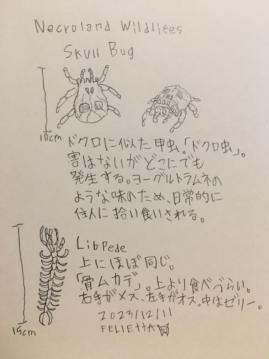 Necroland Wildlifes
Skull Bug
10cm
ドクロに似た甲虫。「ドクロ虫」。
害はないがどこにでも
発生する。ヨーグルトラムネの
ような味のため、日常的に
住人に拾い食いされる。
LibPede
上にほぼ同じ。
「骨ムカデ」。上より食べづらい。
右手がメス、左手がオス。中はゼリー。
15cm
2023/12/11
FELIETTA